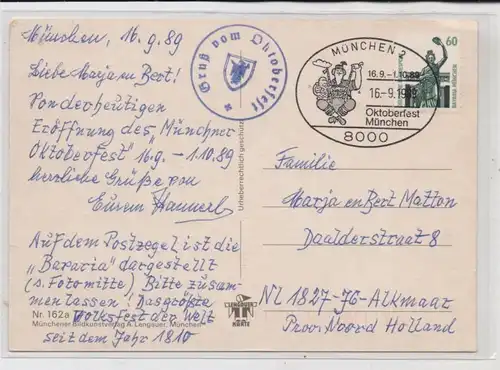 München, 16.9.89
Liebe Marja en Bert!
Von der heutigen
Eröffnung des „Münchner
Oktoberfest" 16.9. - 1.10.89
herzliche Grüße von
Eurem
Auf dem Postzegel ist die
„Bavaria" dargestellt
(s. Fotomitte) Bitte zusam-
men lassen! Das größte
Nr. 162a Volksfest der Welt
Münchener Bildkunstverlag A. Lengauer, München
seit dem Jahr 1810
Urheberrechtlich geschützt
Gruß vom Oktoberfest
LENGAUER
KARTE
MÜNCHEN 2
16.9.-1.10.89
16.-9.19
Oktoberfest
München
8000
60
Familie
Marja en Bert Matton
Daalderstraat 8
NL 1827-JG-Alkmaar
Prov. Noord Holland